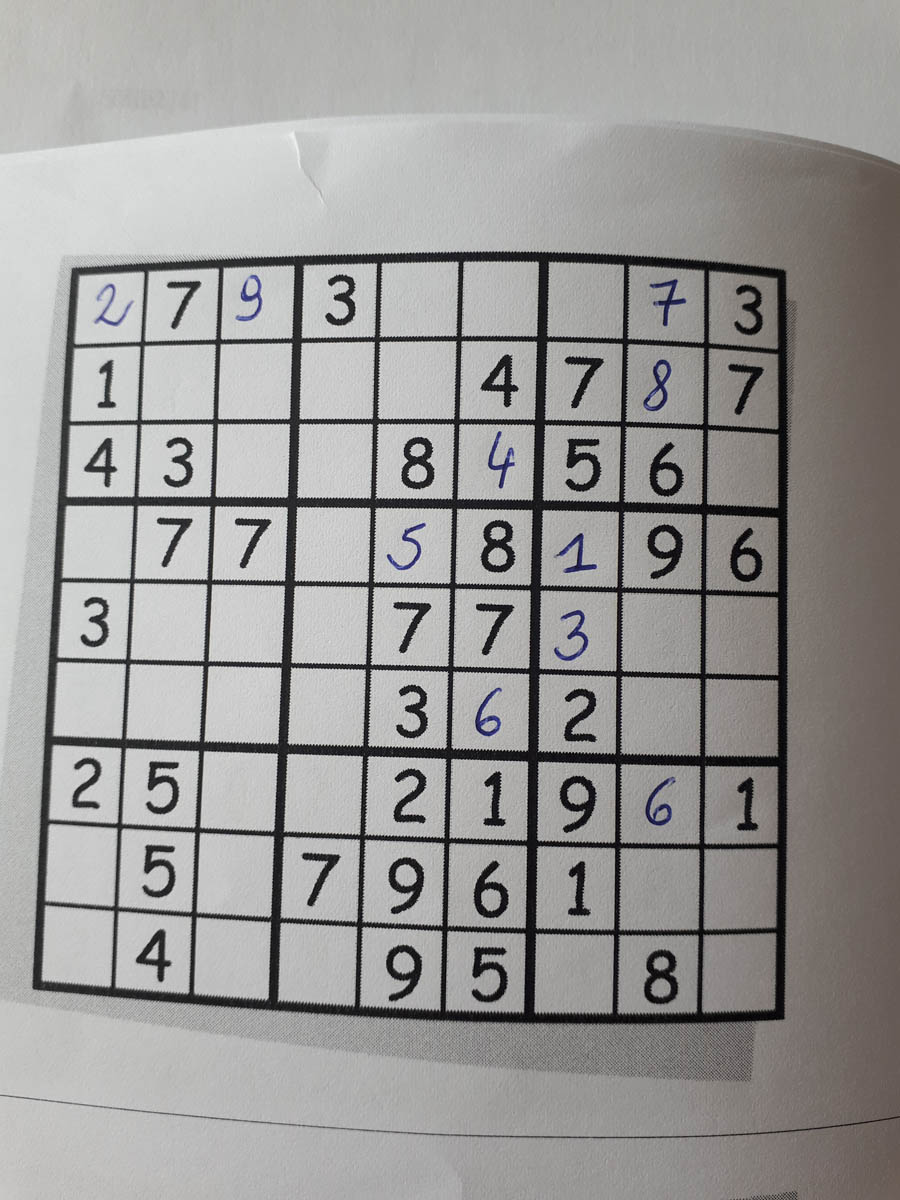 2 7 9 3 7 3
1 4 7 8 7
4 3 8 4 5 6
7 7 5 8 1 9 6
3 7 7 3
3 6 2
2 5 2 1 9 6 1
5 7 9 6 1
4 9 5 8